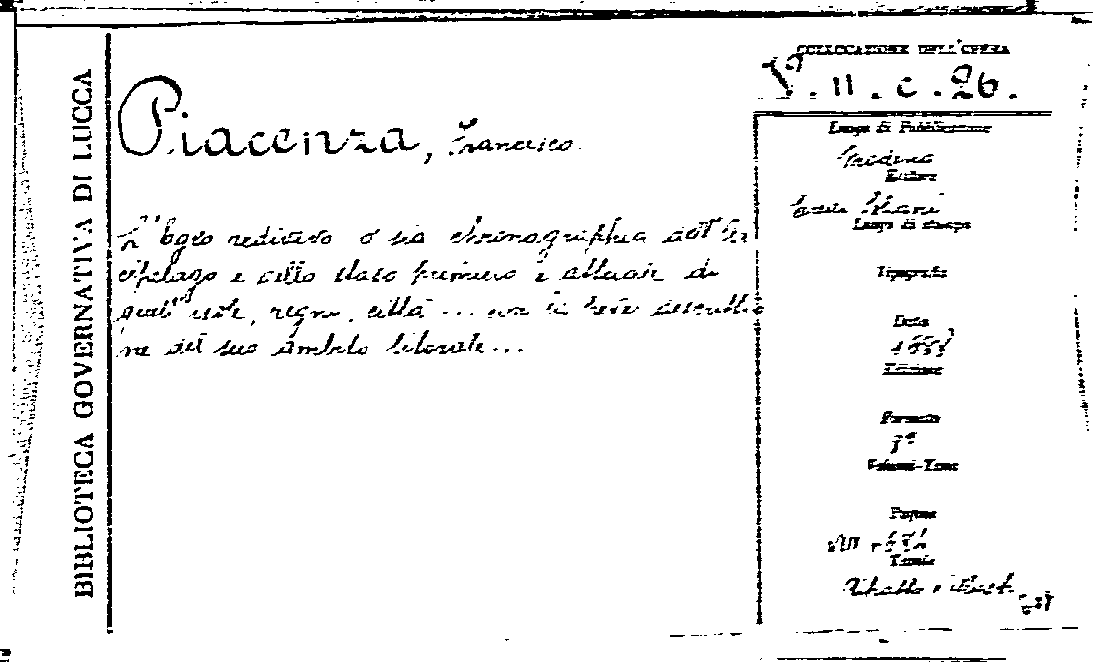 BIBLIOTECA GOVERNATIVA DI LUCCA
Piacenza, Francesco
L'Egeo redivivo o sia chorographia dell'Ar
cipelago e dello stato primiero e attuale di
quell'isole, regni, città ... con la breve descrittio
ne del suo ambito litorale...
COLLOCAZIONE DELL'OPERA
V. II. c. 26.
Luogo di Pubblicazione
Modena
Editore
Soliani
Luogo di stampa
Tipografia
Data
Edizione
Formato
Volumi-Tomi
Pagine
VIII
Tavole